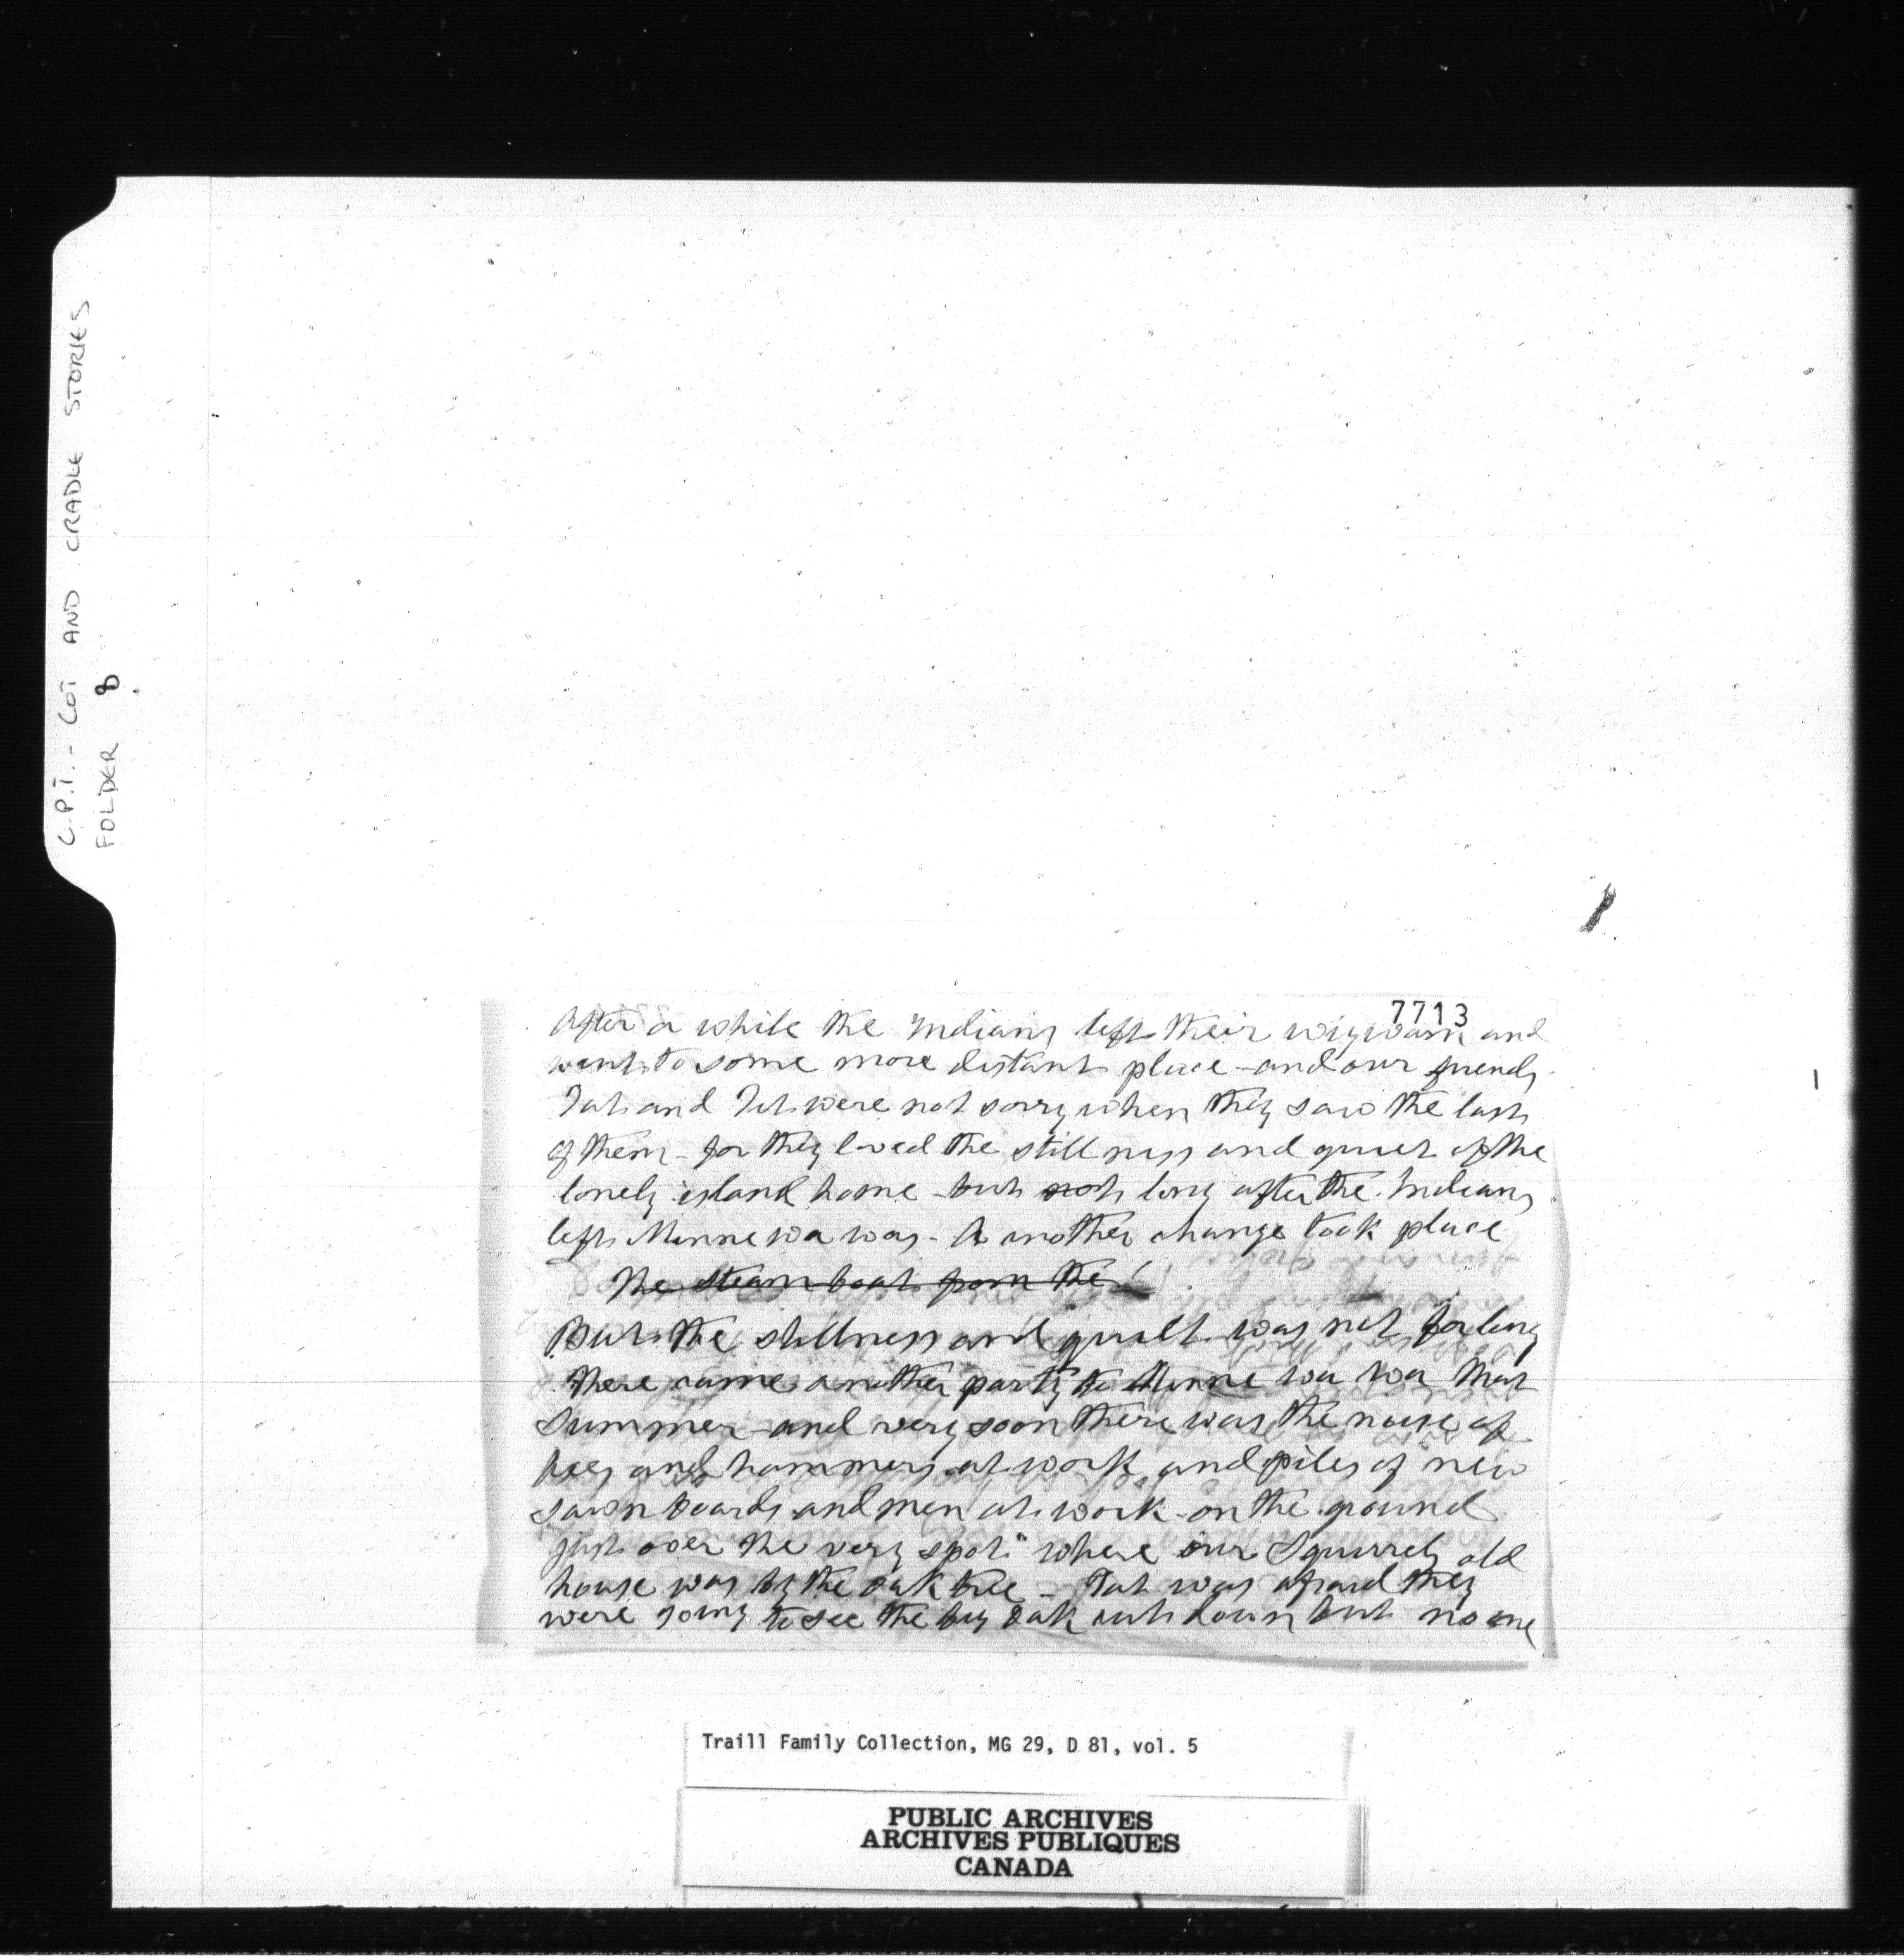 C.P.T. - COT AND CRADLE STORIES
FOLDER 8
7713
After a while the Indians left their wigwam and
went to some more distant place - and our friends
Tat and Tit were not sorry when they saw the last
of them - for they loved the stillness and quiet of the
lonely island home - but not long after the Indians
left Minnewawa - A another change took place
The steam boat from the
But the stillness and quiet was not for long
There came another party to Minne wa wa that
Summer - and very soon there was the noise of
Axes and hammers at work and piles of new
sawn boards and men at work - on the ground
just over the very spot" where our Squirrels old
house was by the oak tree - Tat was afraid they
were going to see the big oak cut down but no one
Traill Family Collection, MG 29, D 81, vol. 5
PUBLIC ARCHIVES
ARCHIVES PUBLIQUES
CANADA